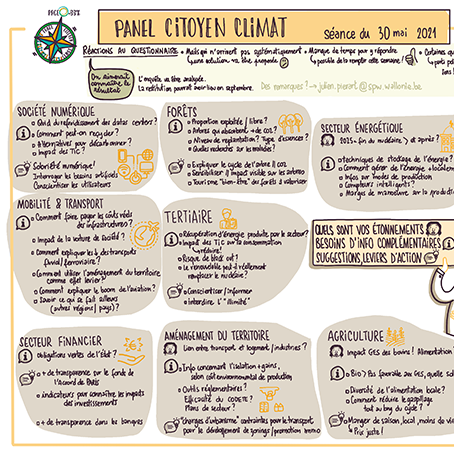 PANEL CITOYEN CLIMAT
Séance du 30 mai 2021
RÉACTIONS AU QUESTIONNAIRE
Mails qui n'arrivent pas systématiquement
Manque de temps pour y répondre
On aimerait connaître le résultat
L'enquête va être analysée.
La restitution pourrait avoir lieu en septembre.
Des remarques ?
SOCIÉTÉ NUMÉRIQUE
Comment peut-on recycler ?
Alternatives pour décarboner ?
Impact des TIC ?
Sobriété numérique !
Interroger les besoins artificiels
Conscientiser les utilisateurs
FORÊTS
Proportion exploitée / libre ?
Arbres qui absorbent + de CO2 ?
Niveau de replantation ? Type d'essences ?
Quelles recherches sur les maladies ?
Expliquer le cycle de l'arbre
Sensibiliser
Impact visible sur les arbres
Tourisme "bien-être" des forêts à valoriser
SECTEUR ÉNERGÉTIQUE
2025 = fin du nucléaire ? et après ?
techniques de stockage de l'énergie ?
Comment gérer de l'énergie
Infos sur modes de production
Compteurs intelligents ?
Marges de manoeuvre sur la production
MOBILITÉ & TRANSPORT
Comment faire payer les coûts réels des infrastructures ?
Impact de la voiture de société ?
Comment expliquer les % des transports fluvial / ferroviaire ?
Comment utiliser l'aménagement du territoire comme effet levier ?
Comment expliquer le boom de l'aviation ?
Savoir ce qui se fait ailleurs
(autres régions / pays) ?
TERTIAIRE
Récupération d'énergie produite par le secteur ?
Impact des TIC sur la consommation
Risque de black out ?
Le renouvelable peut-il réellement
remplacer le nucléaire ?
Conscientiser / informer
Interdire l'"illimité"
QUELS SONT VOS ÉTONNEMENTS
BESOINS D'INFO COMPLÉMENTAIRES
SUGGESTIONS, LEVIERS D'ACTION ?
SECTEUR FINANCIER
obligations vertes de l'état ?
+ de transparence sur le fonds de
l'accord de PARIS
indicateurs pour connaître les impacts
des investissements
+ de transparence dans les banques
AMÉNAGEMENT DU TERRITOIRE
Lien entre transport et logement / industries ?
Info concernant l'isolation + gains,
selon coût environnemental de production
Outils réglementaires ?
Efficacité du CODT ?
Plans de secteur ?
"charges d'urbanisme" contraintes pour le transport
pour le développement de zonings / promotion immo
AGRICULTURE
Impact GES des bovins ! Alimentation
BIO ? Pas favorable aux GES, quelle
Diversité de l'alimentation locale ?
Comment réduire le gaspillage
tout au long du cycle ?
Manger de saison, local, moins de
Prix juste !